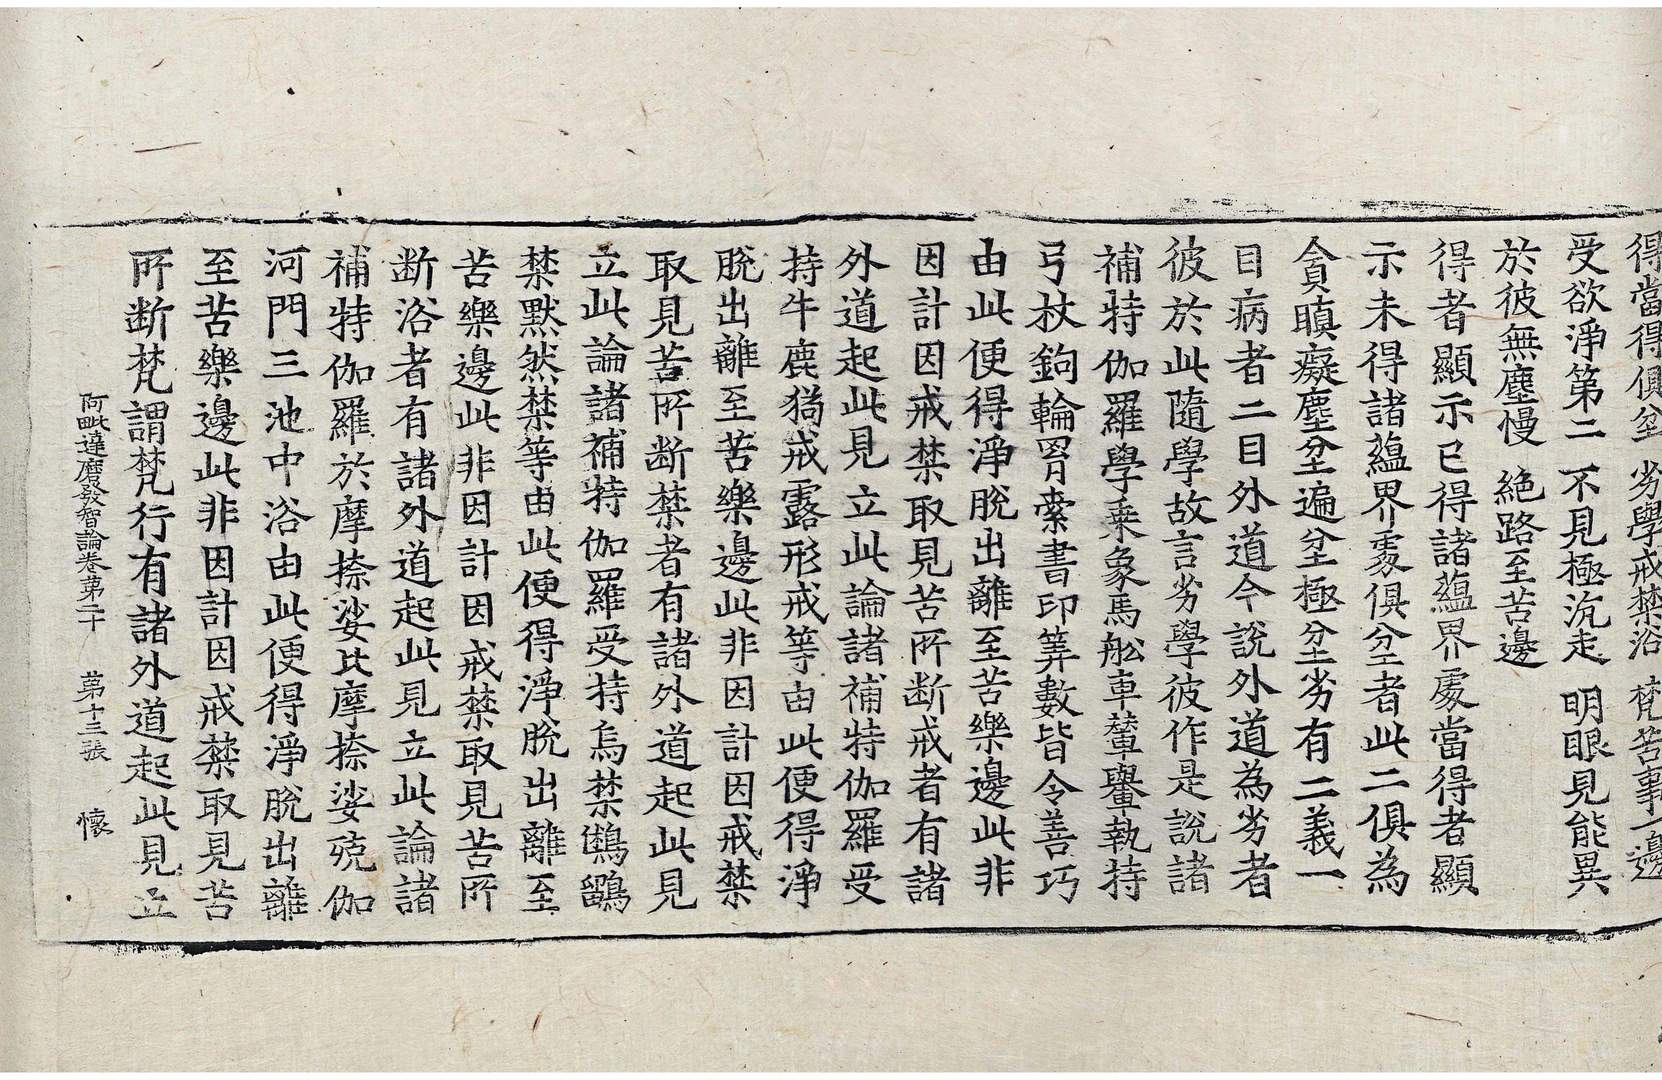 得當得俱坌 劣學戒禁浴 梵苦事一邊
受欲淨第二 不見極沉走 明眼見能異
於彼無塵慢 絕路至苦邊
得者顯示已得諸蘊界處當得者顯
示未得諸蘊界處俱坌者此二俱為
貪瞋癡塵坌遍坌極坌劣有二義一
目病者二目外道今說外道為劣者
彼於此隨學故言劣學彼作是說諸
補特伽羅學乗象馬舩車輦轝執持
弓杖鉤輪罥索書印筭數皆令善巧
由此便得淨脫出離至苦樂邊此非
因計因戒禁取見苦所斷戒者有諸
外道起此見立此論諸補特伽羅受
持牛鹿猗戒露形戒等由此便得淨
脫出離至苦樂邊此非因計因戒禁
取見苦所斷禁者有諸外道起此見
立此論諸補特伽羅受持烏禁鵂鶹
禁默然禁等由此便得淨脫出離至
苦樂邊此非因計因戒禁取見苦所
断浴者有諸外道起此見立此論諸
補特伽羅於摩捺娑比摩捺娑殑伽
河門三池中浴由此便得淨脫出離
至苦樂邊此非因計因戒禁取見苦
所断梵謂梵行有諸外道起此見立
阿毗達磨發智論卷第二十 第十三張 懷